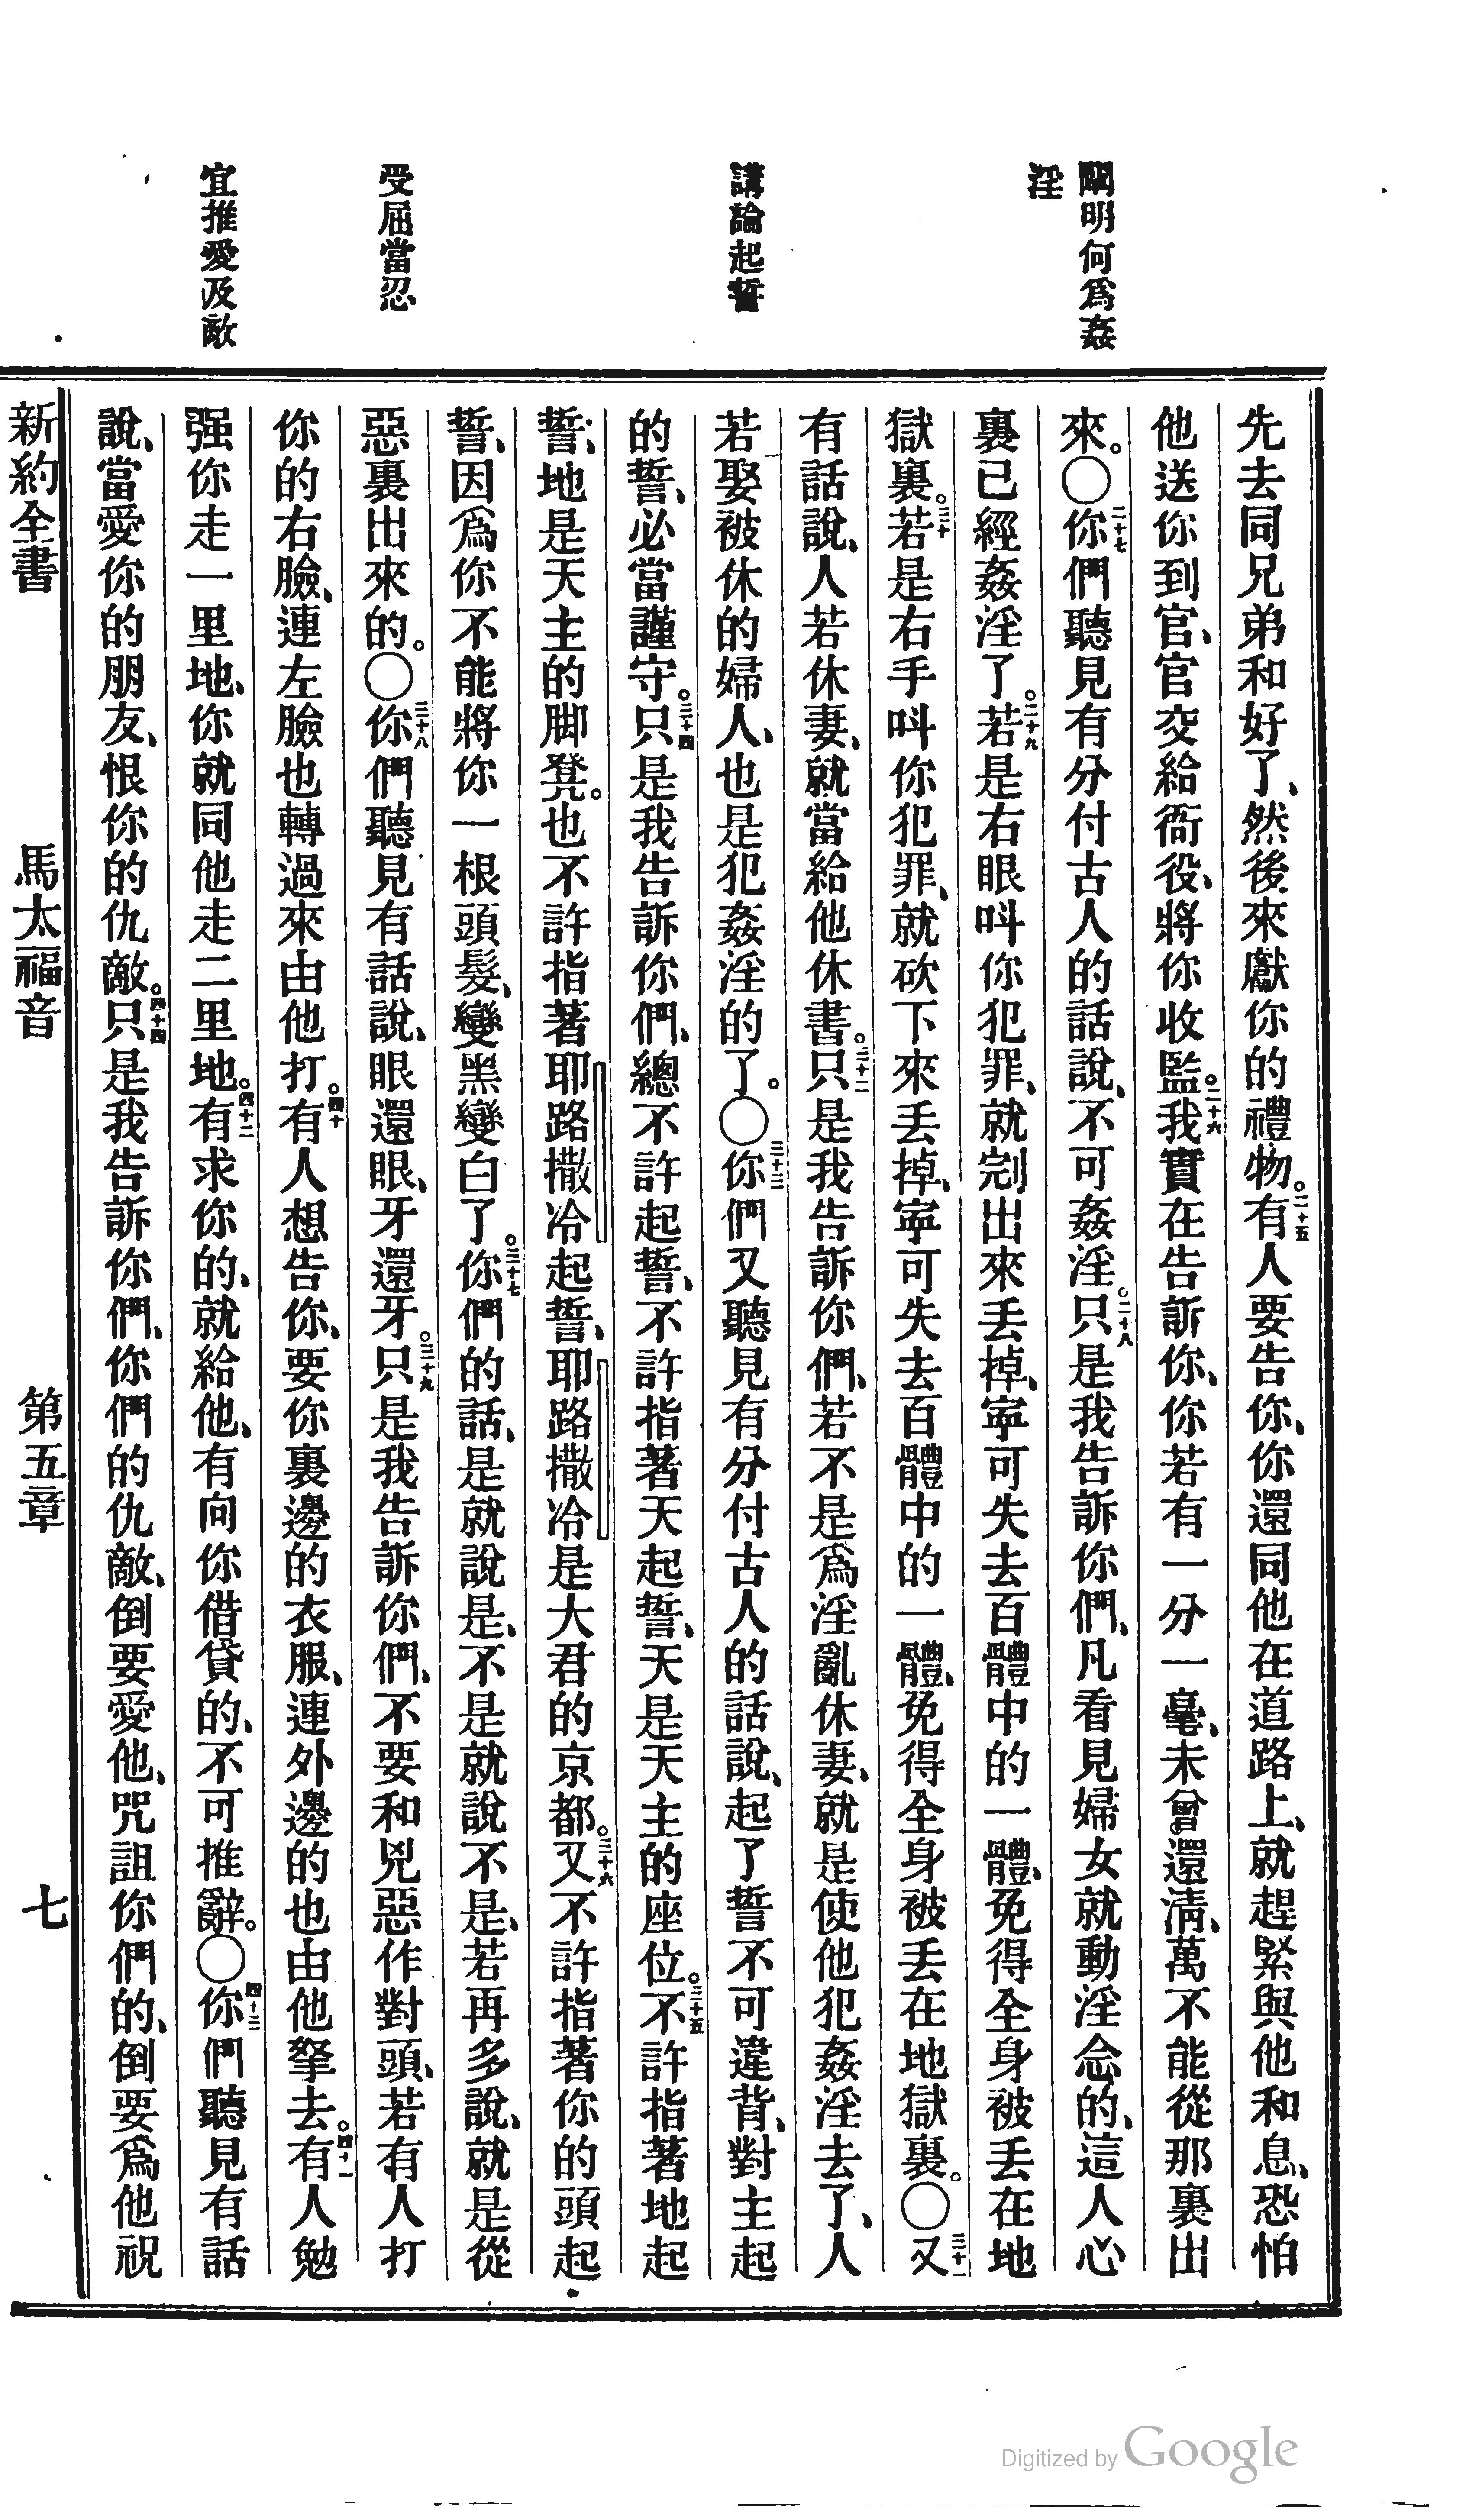 闡明何爲姦
淫
講論起誓
受屈當忍
宜推愛及敵
先去同兄弟和好了、然後來獻你的禮物。二十五有人要告你、你還同他在道路上、就趕緊與他和息、恐怕
他送你到官、官交給衙役、將你收監。二十六我實在告訴你、你若有一分一毫、未曾還淸、萬不能從那裏出
來。〇二十七你們聽見有分付古人的話說、不可姦淫。二十八只是我告訴你們、凡看見婦女就動淫念的、這人心
裏已經姦淫了。二十九若是右眼呌你犯罪、就剜出來丟掉、寜可失去百體中的一體、免得全身被丟在地
獄裏。三十若是右手呌你犯罪、就砍下來丟掉、寜可失去百體中的一體、免得全身被丟在地獄裏。〇三十一又
有話說、人若休妻、就當給他休書。三十二只是我告訴你們、若不是爲淫亂休妻、就是使他犯姦淫去了、人
若娶被休的婦人、也是犯姦淫的了。〇三十三你們又聽見有分付古人的話說、起了誓不可違背、對主起
的誓、必當謹守。三十四只是我告訴你們、總不許起誓、不許指著天起誓、天是天主的座位。三十五不許指著地起
誓、地是天主的脚凳。也不許指著耶路撒冷起誓、耶路撒冷是大君的京都。三十六又不許指著你的頭起
誓、因爲你不能將你一根頭髮、變黑變白了。三十七你們的話、是就說是、不是就說不是、若再多說、就是從
惡裏出來的。〇三十八你們聽見有話說、眼還眼、牙還牙。三十九只是我告訴你們、不要和兇惡作對頭、若有人打
你的右臉、連左臉也轉過來由他打。四十有人想告你、要你裏邊的衣服、連外邊的也由他拏去。四十一有人勉
强你走一里地、你就同他走二里地。四十二有求你的、就給他、有向你借貸的、不可推辭。〇四十三你們聽見有話
說、當愛你的朋友、恨你的仇敵。四十四只是我告訴你們、你們的仇敵、倒要愛他、咒詛你們的、倒要爲他祝
新約全書 馬太福音 第五章 七
Digitized by Google